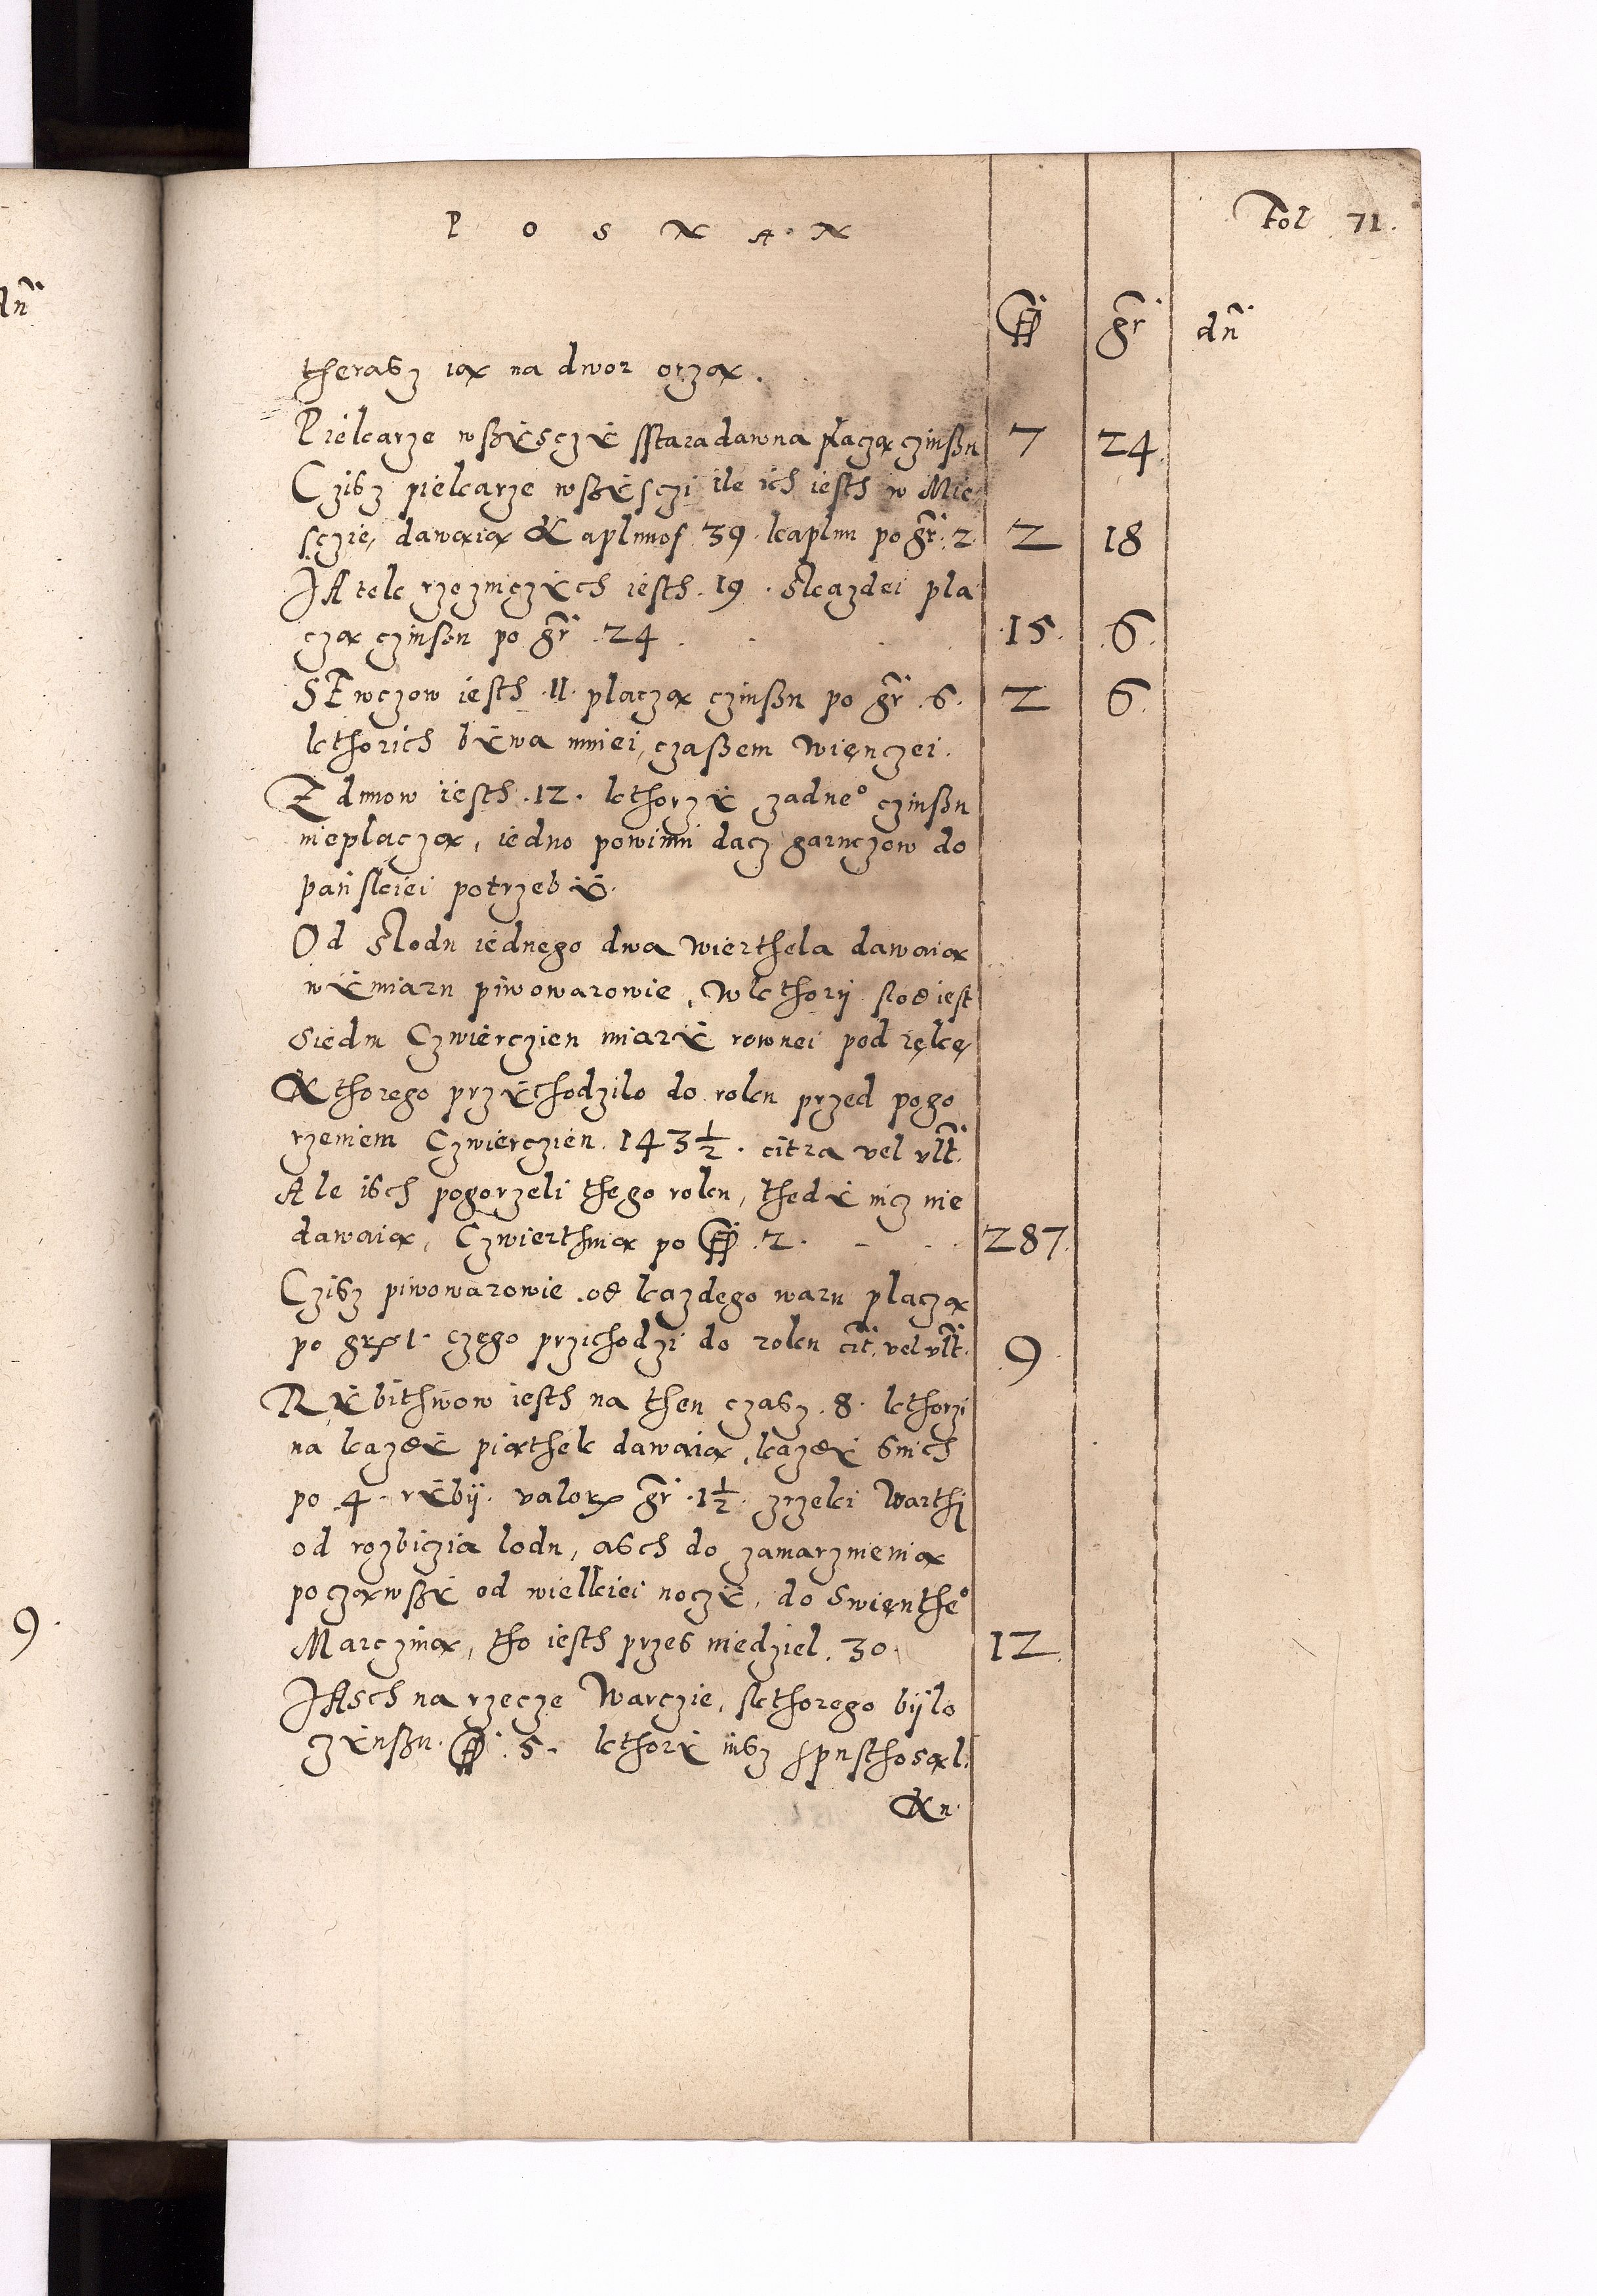 dn̄
9.
P O S N A N
Fol 71.
fl gr dn̄
therasz ią na dwor orzą.
Piekarze wssysczy sstaradawna płaczą czinssu 7 24
Czisz piekarze wssysczi ile ich iesth w Mie
sczie, dawaią Kaplunos 39 kaplun po gr. 2 2 18
JAtek rzezniczych iesth .19. skazdei pla
czą czinssu po gr. 24 15. 6.
SEwczow iesth .11. placzą czinssu po gr .6. 2 6
kthorich bywa mniei, czassem Więnczei.
Zdunow iesth .12. kthorzy zadne° czinssu
nieplaczą, iedno powinni dacz garnczow do
pańskiei potrzeby.
Od slodu iednego dwa Wierthela dawaią
wymiaru piwowarowie, Wkthorij slod iest
siedm Czwierczien miary rownei pod rękę
Kthorego przychodzilo do roku przed pogo
rzeniem Czwierczien. 143½. citra vel vlt.
Ale isch pogorzeli thego roku, thedy nicz nie
dawaia, Czwierthnia po fl .2. 287.
Czisz piwowarowie .od kazdego waru placzą
po gr 1. czego przichodzi do roku cit. vel vlt. 9
Rybithwow iesth na then czasz .8. kthorzi
na kazdy piąthek dawaią, kazdy snich
po 4. rybij. valor gr .1½. zrzeki Warthi
od rozbiczia lodu, asch do zamarznienia
począwssy od wielkiei noczy, do Swięnthe°
Marczina, tho iesth przes niedziel .30. 12
JAsch na rzecze Warczie, skthorego bijlo
czynssu. fl .5. kthory iusz spusthosal.
Ku.